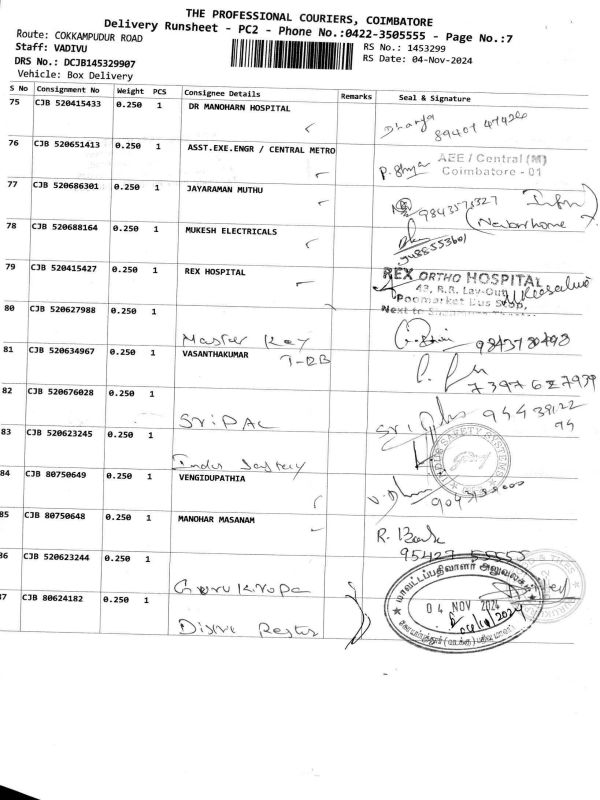 THE PROFESSIONAL COURIERS, COIMBATORE
Delivery Runsheet - PC2 - Phone No.:0422-3505555 - Page No.:7
Route: COKKAMPUDUR ROAD
RS No.: 1453299
Staff: VADIVU
RS Date: 04-Nov-2024
DRS No.: DCJB145329907
Vehicle: Box Delivery
S No Consignment No Weight PCS Consignee Details Remarks Seal & Signature
75 CJB 520415433 0.250 1 DR MANOHARN HOSPITAL
Dharga
89407 47426
76 CJB 520651413 0.250 1 ASST.EXE.ENGR / CENTRAL METRO
P. Shya AEE / Central (M)
Coimbatore - 01
77 CJB 520686301 0.250 1 JAYARAMAN MUTHU
9843571327
78 CJB 520688164 0.250 1 MUKESH ELECTRICALS
9488553601
79 CJB 520415427 0.250 1 REX HOSPITAL
REX ORTHO HOSPITAL
43, R.R. Lay-Out,
Poomarket Bus Stop,
Next to
80 CJB 520627988 0.250 1
Master Key
9843730493
81 CJB 520634967 0.250 1 VASANTHAKUMAR
T-RB
73976 27939
82 CJB 520676028 0.250 1
SRIPAL
Sri
94439122
94
83 CJB 520623245 0.250 1
SAFETY SYSTEMS
84 CJB 80750649 0.250 1 VENGIDUPATHIA
85 CJB 80750648 0.250 1 MANOHAR MASANAM
R. Bank
95427 55555
86 CJB 520623244 0.250 1
Guru Kirupa
மாவட்டப்பதிவாளர் அலுவலகம்
04 NOV 2024
87 CJB 80624182 0.250 1